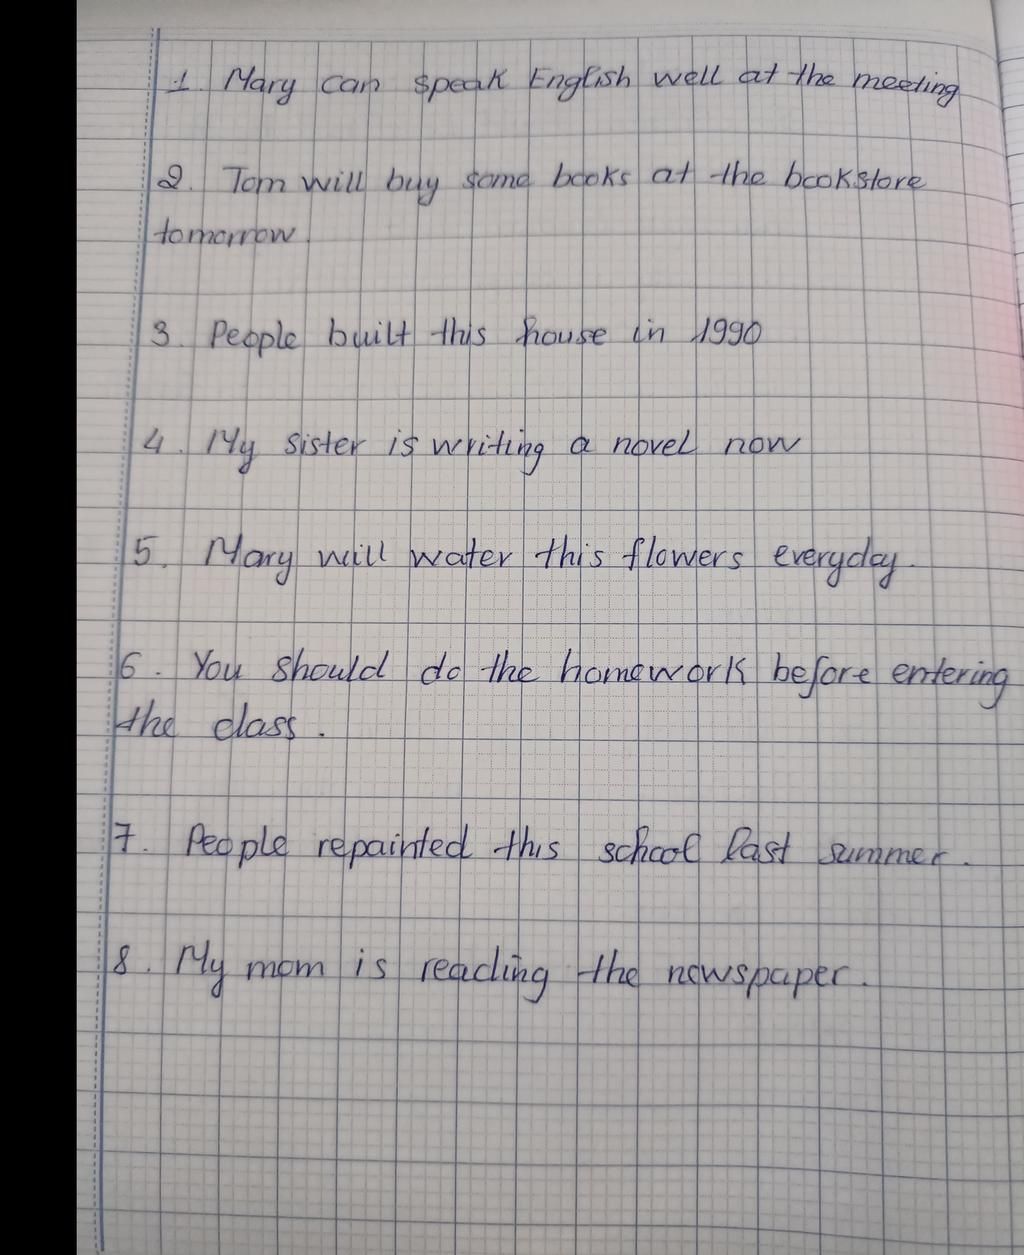 1. Mary can speak English well at the meeting
2. Tom will buy some books at the bookstore
tomorrow.
3. People built this house in 1990
4. My sister is writing a novel now
5. Mary will water this flowers everyday.
6. You should do the homework before entering
the class.
7. People repainted this school last summer.
8. My mom is reading the newspaper.